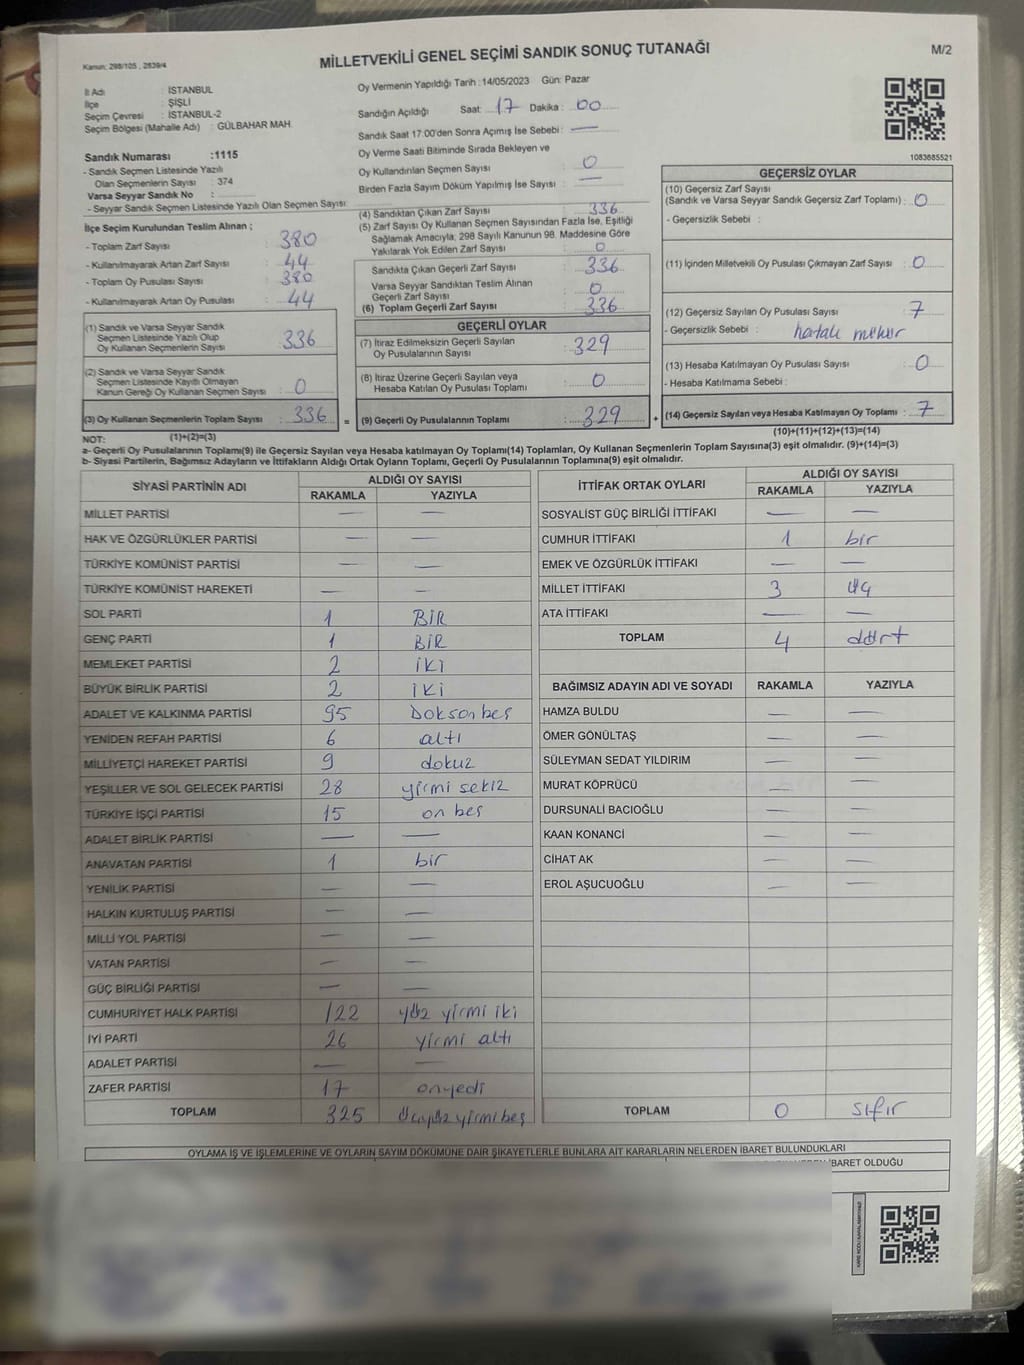 Kanun: 298/105, 2839/4
MİLLETVEKİLİ GENEL SEÇİMİ SANDIK SONUÇ TUTANAĞI
M/2
İl Adı : İSTANBUL
İlçe : ŞİŞLİ
Seçim Çevresi : İSTANBUL-2
Seçim Bölgesi (Mahalle Adı) : GÜLBAHAR MAH.
Sandık Numarası :1115
- Sandık Seçmen Listesinde Yazılı
Olan Seçmenlerin Sayısı : 374
Varsa Seyyar Sandık No :
- Seyyar Sandık Seçmen Listesinde Yazılı Olan Seçmen Sayısı:
İlçe Seçim Kurulundan Teslim Alınan ;
- Toplam Zarf Sayısı : 380
- Kullanılmayarak Artan Zarf Sayısı : 44
- Toplam Oy Pusulası Sayısı : 380
- Kullanılmayarak Artan Oy Pusulası : 44
(1) Sandık ve Varsa Seyyar Sandık
Seçmen Listesinde Yazılı Olup
Oy Kullanan Seçmenlerin Sayısı : 336
(2) Sandık ve Varsa Seyyar Sandık
Seçmen Listesinde Kayıtlı Olmayan
Kanun Gereği Oy Kullanan Seçmen Sayısı : 0
(3) Oy Kullanan Seçmenlerin Toplam Sayısı : 336 =
Oy Vermenin Yapıldığı Tarih :14/05/2023 Gün: Pazar
Sandığın Açıldığı Saat: 17 Dakika : 00
Sandık Saat 17:00'den Sonra Açımış İse Sebebi : —
Oy Verme Saati Bitiminde Sırada Bekleyen ve
Oy Kullandırılan Seçmen Sayısı : 0
Birden Fazla Sayım Döküm Yapılmış İse Sayısı : —
(4) Sandıktan Çıkan Zarf Sayısı : 336
(5) Zarf Sayısı Oy Kullanan Seçmen Sayısından Fazla İse, Eşitliği
Sağlamak Amacıyla, 298 Sayılı Kanunun 98. Maddesine Göre
Yakılarak Yok Edilen Zarf Sayısı : 0
Sandıkta Çıkan Geçerli Zarf Sayısı : 336
Varsa Seyyar Sandıktan Teslim Alınan
Geçerli Zarf Sayısı : 0
(6) Toplam Geçerli Zarf Sayısı : 336
GEÇERLİ OYLAR
(7) İtiraz Edilmeksizin Geçerli Sayılan
Oy Pusulalarının Sayısı : 329
(8) İtiraz Üzerine Geçerli Sayılan veya
Hesaba Katılan Oy Pusulası Toplamı : 0
(9) Geçerli Oy Pusulalarının Toplamı : 329 +
1083885521
GEÇERSİZ OYLAR
(10) Geçersiz Zarf Sayısı
(Sandık ve Varsa Seyyar Sandık Geçersiz Zarf Toplamı) : 0
- Geçersizlik Sebebi :
(11) İçinden Milletvekili Oy Pusulası Çıkmayan Zarf Sayısı : 0
(12) Geçersiz Sayılan Oy Pusulası Sayısı : 7
- Geçersizlik Sebebi : hatalı mühür
(13) Hesaba Katılmayan Oy Pusulası Sayısı : 0
- Hesaba Katılmama Sebebi :
(14) Geçersiz Sayılan veya Hesaba Katılmayan Oy Toplamı : 7
(10)+(11)+(12)+(13)=(14)
NOT: (1)+(2)=(3)
a- Geçerli Oy Pusulalarının Toplamı(9) ile Geçersiz Sayılan veya Hesaba katılmayan Oy Toplamı(14) Toplamları, Oy Kullanan Seçmenlerin Toplam Sayısına(3) eşit olmalıdır. (9)+(14)=(3)
b- Siyasi Partilerin, Bağımsız Adayların ve İttifakların Aldığı Ortak Oyların Toplamı, Geçerli Oy Pusulalarının Toplamına(9) eşit olmalıdır.
SİYASİ PARTİNİN ADI ALDIĞI OY SAYISI
RAKAMLA YAZIYLA
MİLLET PARTİSİ — —
HAK VE ÖZGÜRLÜKLER PARTİSİ — —
TÜRKİYE KOMÜNİST PARTİSİ — —
TÜRKİYE KOMÜNİST HAREKETİ — —
SOL PARTİ 1 BİR
GENÇ PARTİ 1 BİR
MEMLEKET PARTİSİ 2 İKİ
BÜYÜK BİRLİK PARTİSİ 2 İKİ
ADALET VE KALKINMA PARTİSİ 95 Doksan beş
YENİDEN REFAH PARTİSİ 6 altı
MİLLİYETÇİ HAREKET PARTİSİ 9 dokuz
YEŞİLLER VE SOL GELECEK PARTİSİ 28 yirmi sekiz
TÜRKİYE İŞÇİ PARTİSİ 15 on beş
ADALET BİRLİK PARTİSİ — —
ANAVATAN PARTİSİ 1 bir
YENİLİK PARTİSİ — —
HALKIN KURTULUŞ PARTİSİ — —
MİLLİ YOL PARTİSİ — —
VATAN PARTİSİ — —
GÜÇ BİRLİĞİ PARTİSİ — —
CUMHURİYET HALK PARTİSİ 122 yüz yirmi iki
İYİ PARTİ 26 yirmi altı
ADALET PARTİSİ — —
ZAFER PARTİSİ 17 onyedi
TOPLAM 325 üçyüz yirmi beş
İTTİFAK ORTAK OYLARI ALDIĞI OY SAYISI
RAKAMLA YAZIYLA
SOSYALİST GÜÇ BİRLİĞİ İTTİFAKI — —
CUMHUR İTTİFAKI 1 bir
EMEK VE ÖZGÜRLÜK İTTİFAKI — —
MİLLET İTTİFAKI 3 üç
ATA İTTİFAKI — —
TOPLAM 4 dört
BAĞIMSIZ ADAYIN ADI VE SOYADI RAKAMLA YAZIYLA
HAMZA BULDU — —
ÖMER GÖNÜLTAŞ — —
SÜLEYMAN SEDAT YILDIRIM — —
MURAT KÖPRÜCÜ — —
DURSUNALİ BACIOĞLU — —
KAAN KONANCİ — —
CİHAT AK — —
EROL AŞUCUOĞLU — —
TOPLAM 0 sıfır
OYLAMA İŞ VE İŞLEMLERİNE VE OYLARIN SAYIM DÖKÜMÜNE DAİR ŞİKAYETLERLE BUNLARA AİT KARARLARIN NELERDEN İBARET BULUNDUKLARI
İBARET OLDUĞU